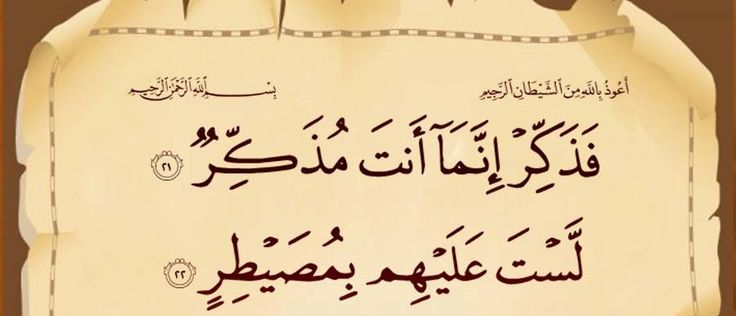 أَعُوذُ بِاللَّهِ مِنَ الشَّيْطَانِ الرَّجِيمِ بِسْمِ اللَّهِ الرَّحْمَٰنِ الرَّحِيمِ
فَذَكِّرْ إِنَّمَآ أَنتَ مُذَكِّرٌۭ ٢١
لَّسْتَ عَلَيْهِم بِمُصَيْطِرٍ ٢٢